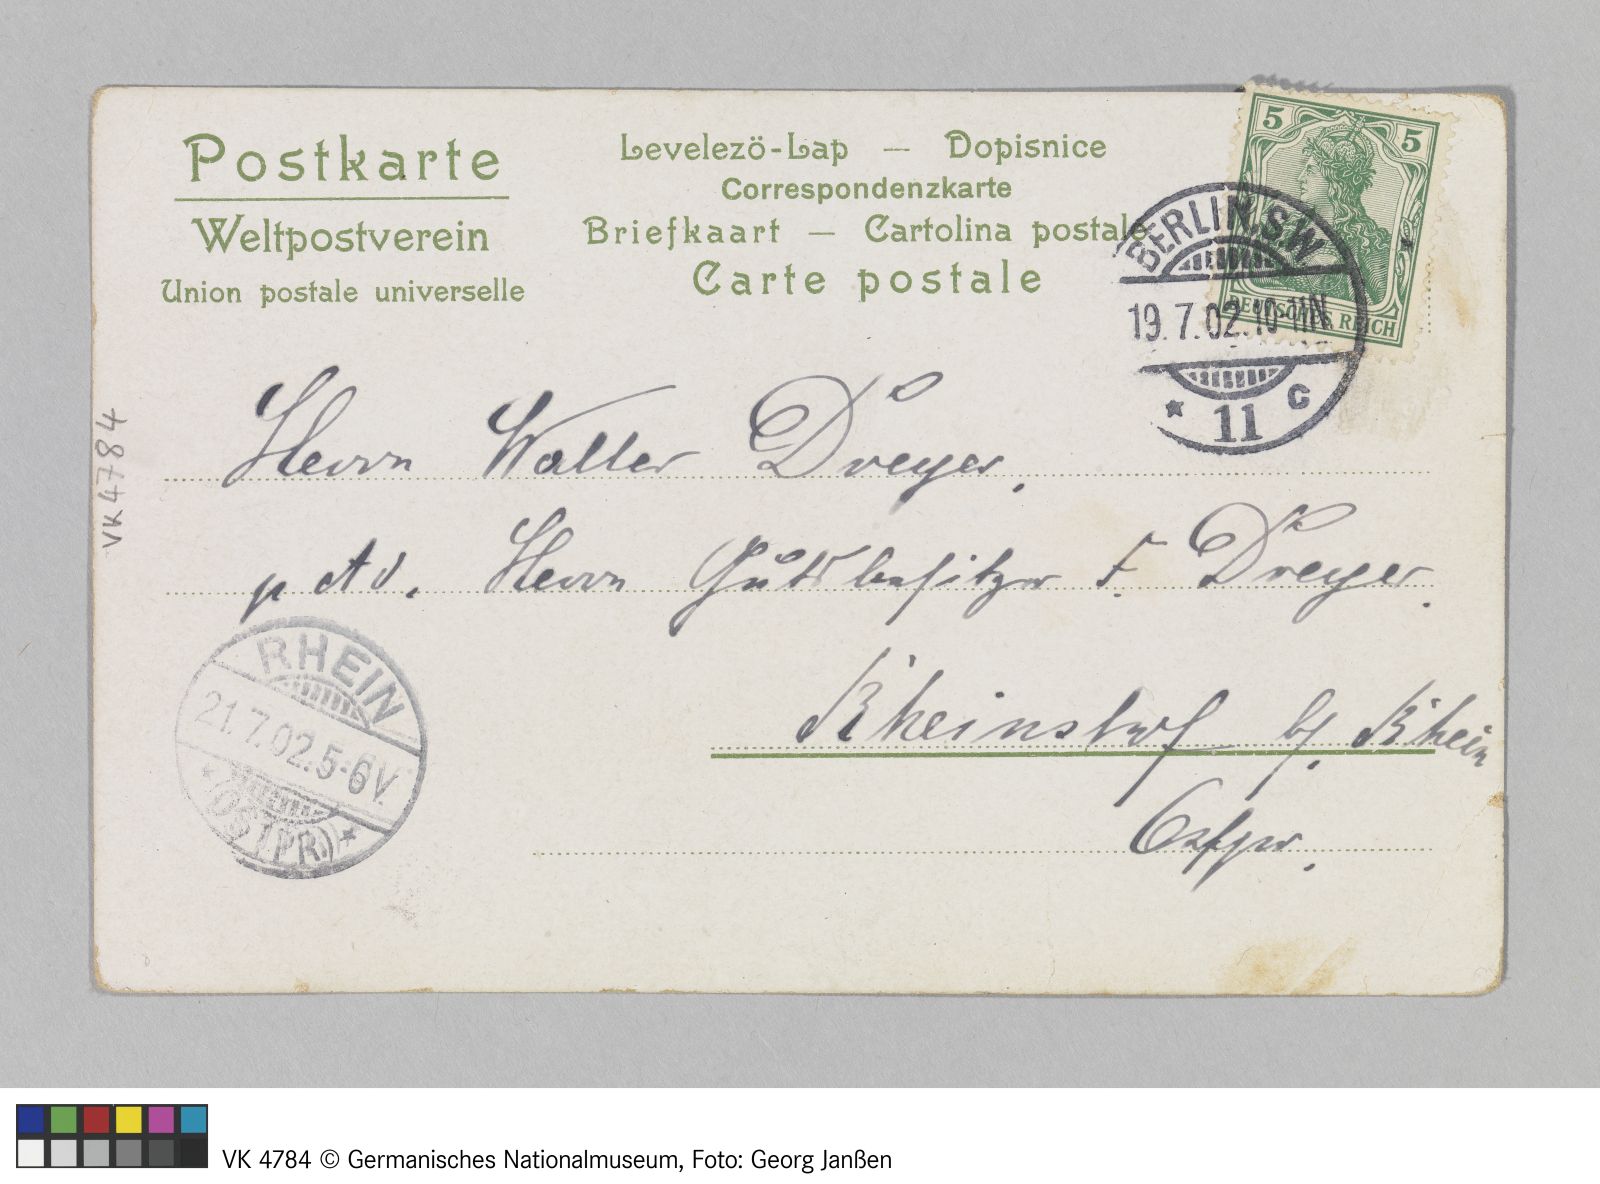 Postkarte
Weltpostverein
Union postale universelle
Levelezö-Lap — Dopisnice
Correspondenzkarte
Briefkaart — Cartolina postale
Carte postale
5 5
DEUTSCHES REICH
BERLIN.SW
19.7.02.10-11N.
* 11 c
Herrn Walter Dreyer.
p. Ad. Herrn Gutsbesitzer F. Dreyer.
Rheinshof b/. Rhein
Ostpr.
RHEIN
21.7.02.5-6V.
*(OSTPR.)*
VK4784
VK 4784 © Germanisches Nationalmuseum, Foto: Georg Janßen